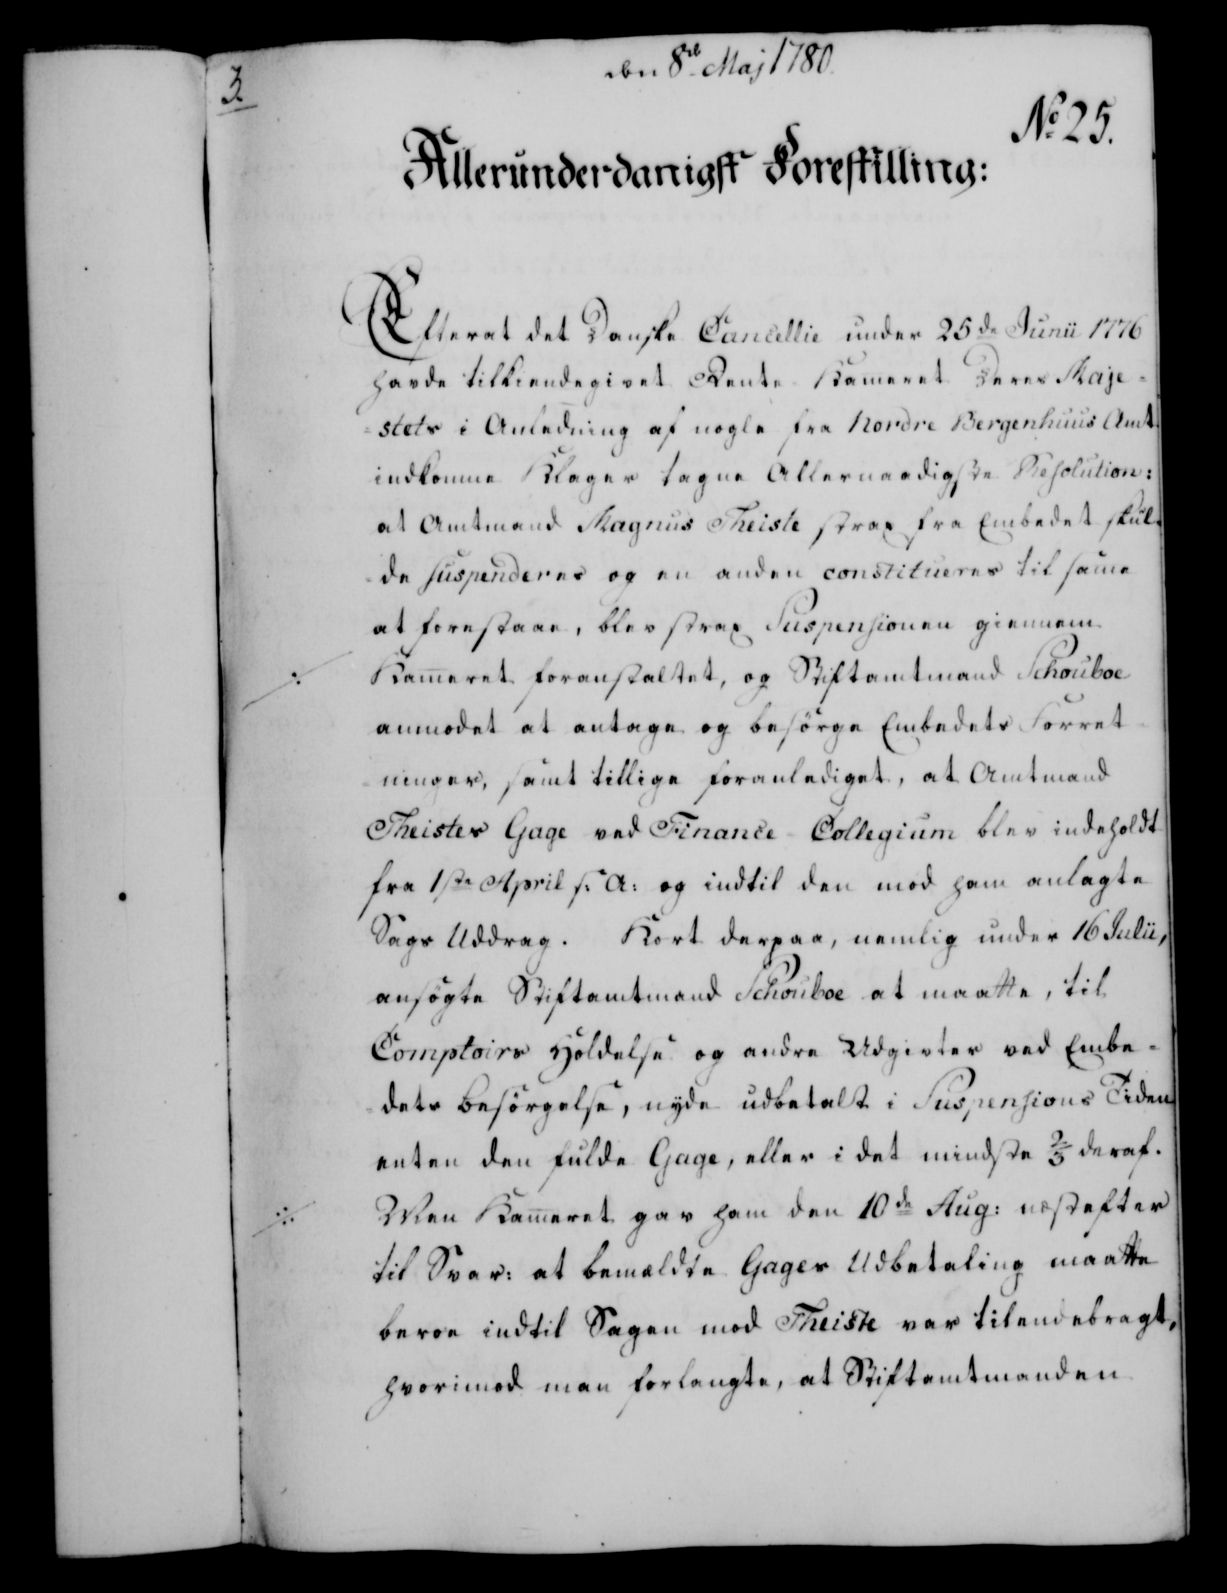 den 8de Maj 1780.
3
No 25.
Allerunderdanigst Forestilling:
Efterat det Danske Cancellie under 25de Junii 1776
havde tilkiendegivet Rente-Kam̅eret Deres Maje-
-stets i Anledning af nogle fra Nordre Bergenhuus Amt
indkomne Klager tagne Allernaadigste Resolution:
at Amtmand Magnus Theiste strax fra Embedet skul-
-de suspenderes og en anden constitueres til sam̅e
at forestaae, blev strax Suspensionen giennem
Kam̅eret foranstaltet, og Stiftamtmand Schouboe
anmodet at antage og besørge Embedets Forret-
-ninger, samt tillige foranlediget, at Amtmand
Theistes Gage ved Finance-Collegium blev indeholdt
fra 1ste April s: A: og indtil den mod ham anlagte
Sags Uddrag. Kort derpaa, nemlig under 16 Julii,
ansøgte Stiftamtmand Schouboe at maatte, til
Comptoirs Holdelse og andre Udgivter ved Embe-
-dets Besørgelse, nyde udbetalt i Suspensions Tiden
enten den fulde Gage, eller i det mindste 2/3 deraf.
Men Kam̅eret gav ham den 10de Aug: næstefter
til Svar: at bemældte Gages Udbetaling maatte
beroe indtil Sagen mod Theiste var tilendebragt,
hvorimod man forlangte, at Stiftamtmanden